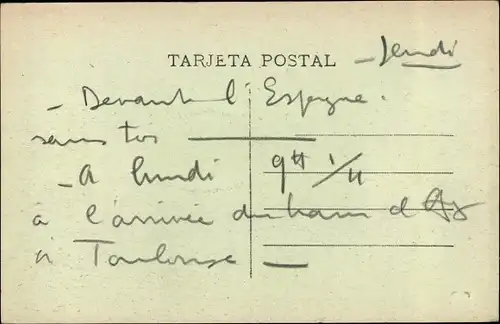 TARJETA POSTAL
- Jeudi
- Devant l'Espagne.
sans toi
- A lundi 9H 1/4
à l'arrivée du train d'
à Toulouse